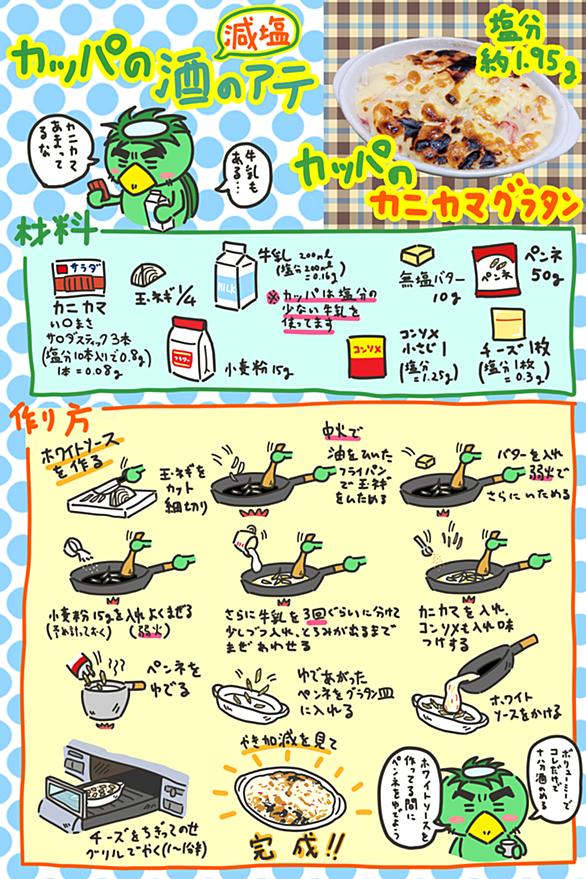 減塩
カッパの酒のアテ
塩分
約1.95g
カニカマ
あまって
るな
牛乳も
ある…
カッパの
カニカマグラタン
材料
サラダ
カニカマ
い〇まさ
サロダスティック3本
(塩分10本入りで0.8g)
1本=0.08g
玉ネギ1/4
MILK
牛乳 200ml
(塩分200ml
=0.16g)
※カッパは塩分の
少ない牛乳を
使ってます
無塩バター
10g
ペンネ
ペンネ
50g
フラワー
小麦粉15g
コンソメ
コンソメ
小さじ1
(塩分
=1.25g)
チーズ1枚
(塩分1枚
=0.3g)
作り方
ホワイトソース
を作る
玉ネギを
カット
細切り
中火で
油をひいた
フライパン
で玉ネギ
をいためる
バターを入れ
弱火で
さらにいためる
小麦粉15gを入れよくまぜる
(予め計っておく) (弱火)
さらに牛乳を3回ぐらいに分けて
少しづつ入れ、とろみが出るまで
まぜあわせる
カニカマを入れ、
コンソメも入れ味
つけする
ペンネを
ゆでる
ゆであがった
ペンネをグラタン皿
に入れる
ホワイト
ソースをかける
チーズをちぎってのせ
グリルでやく(1〜6分半)
やき加減を見て
完成!!
ホワイトソースを
作ってる間に
ペンネをゆでよう
ボリューミーで
コレだけで
十分酒のめる